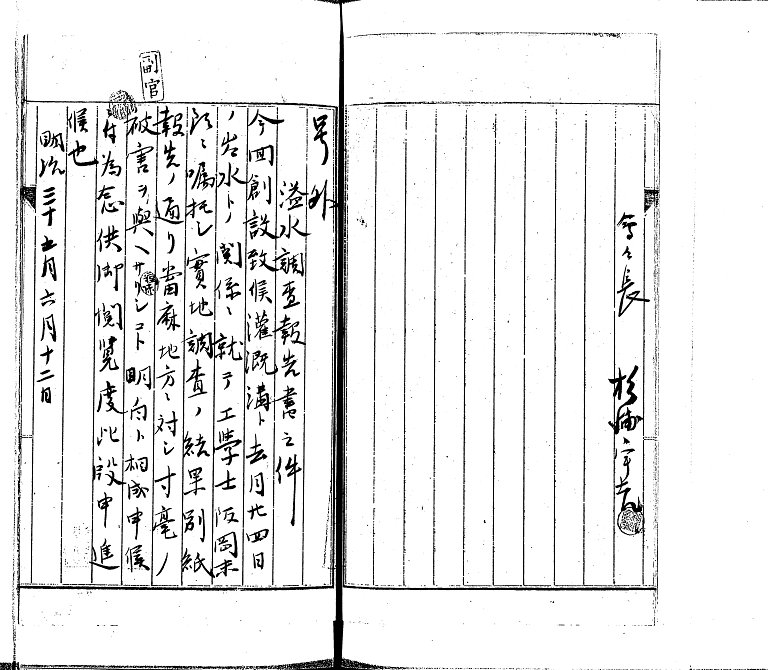 号外
溢水調査報告書之件
今回創設致候灌漑溝ト去月廿四日
ノ出水トノ関係ニ就テ工學士阪岡末
ニ嘱托シ實地調査ノ結果別紙
報告ノ通り當麻地方ニ対シ寸毫ノ
破害ヲ與ヘサリシコト明白ト相成申候
付為念供御閲覧度此段申進
候也
明治三十五年六月十二日
副官
長 杉浦宇吉